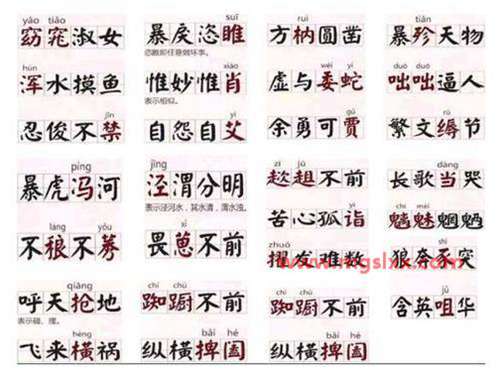 yǎo tiǎo suī ruì tiǎn
窈窕淑女 暴戾恣睢 方枘圆凿 暴殄天物
恣睢即任意做坏事。
hún xiào wēi yí duō duō
浑水摸鱼 惟妙惟肖 虚与委蛇 咄咄逼人
表示相似。
jīn yì gǔ rù
忍俊不禁 自怨自艾 余勇可贾 繁文缛节
píng jīng zī jū dàng
暴虎冯河 泾渭分明 趑趄不前 长歌当哭
表示泾河水，其水清，渭水浊。
láng yǒu xǐ yì
不稂不莠 畏葸不前 苦心孤诣 魑魅魍魉
zhuó
擢发难数 狼奔豕突
qiāng chí chú chí chú jǔ
呼天抢地 踟蹰不前 踟蹰不前 含英咀华
表示碰、撞。
hèng bǎi hé bǎi hé
飞来横祸 纵横捭阖 纵横捭阖